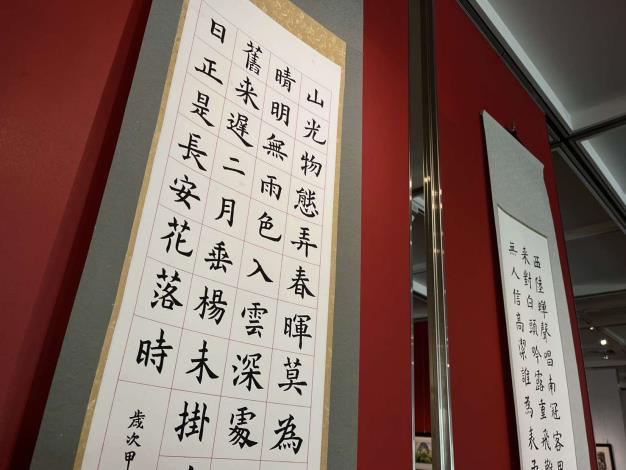 山光物態弄春暉莫為
晴明無雨色入雲深處
舊来遲二月垂楊未掛
日正是長安花落時
歲次甲
西陸蟬聲唱南冠客
来對白頭吟露重飛
無人信高潔誰為表